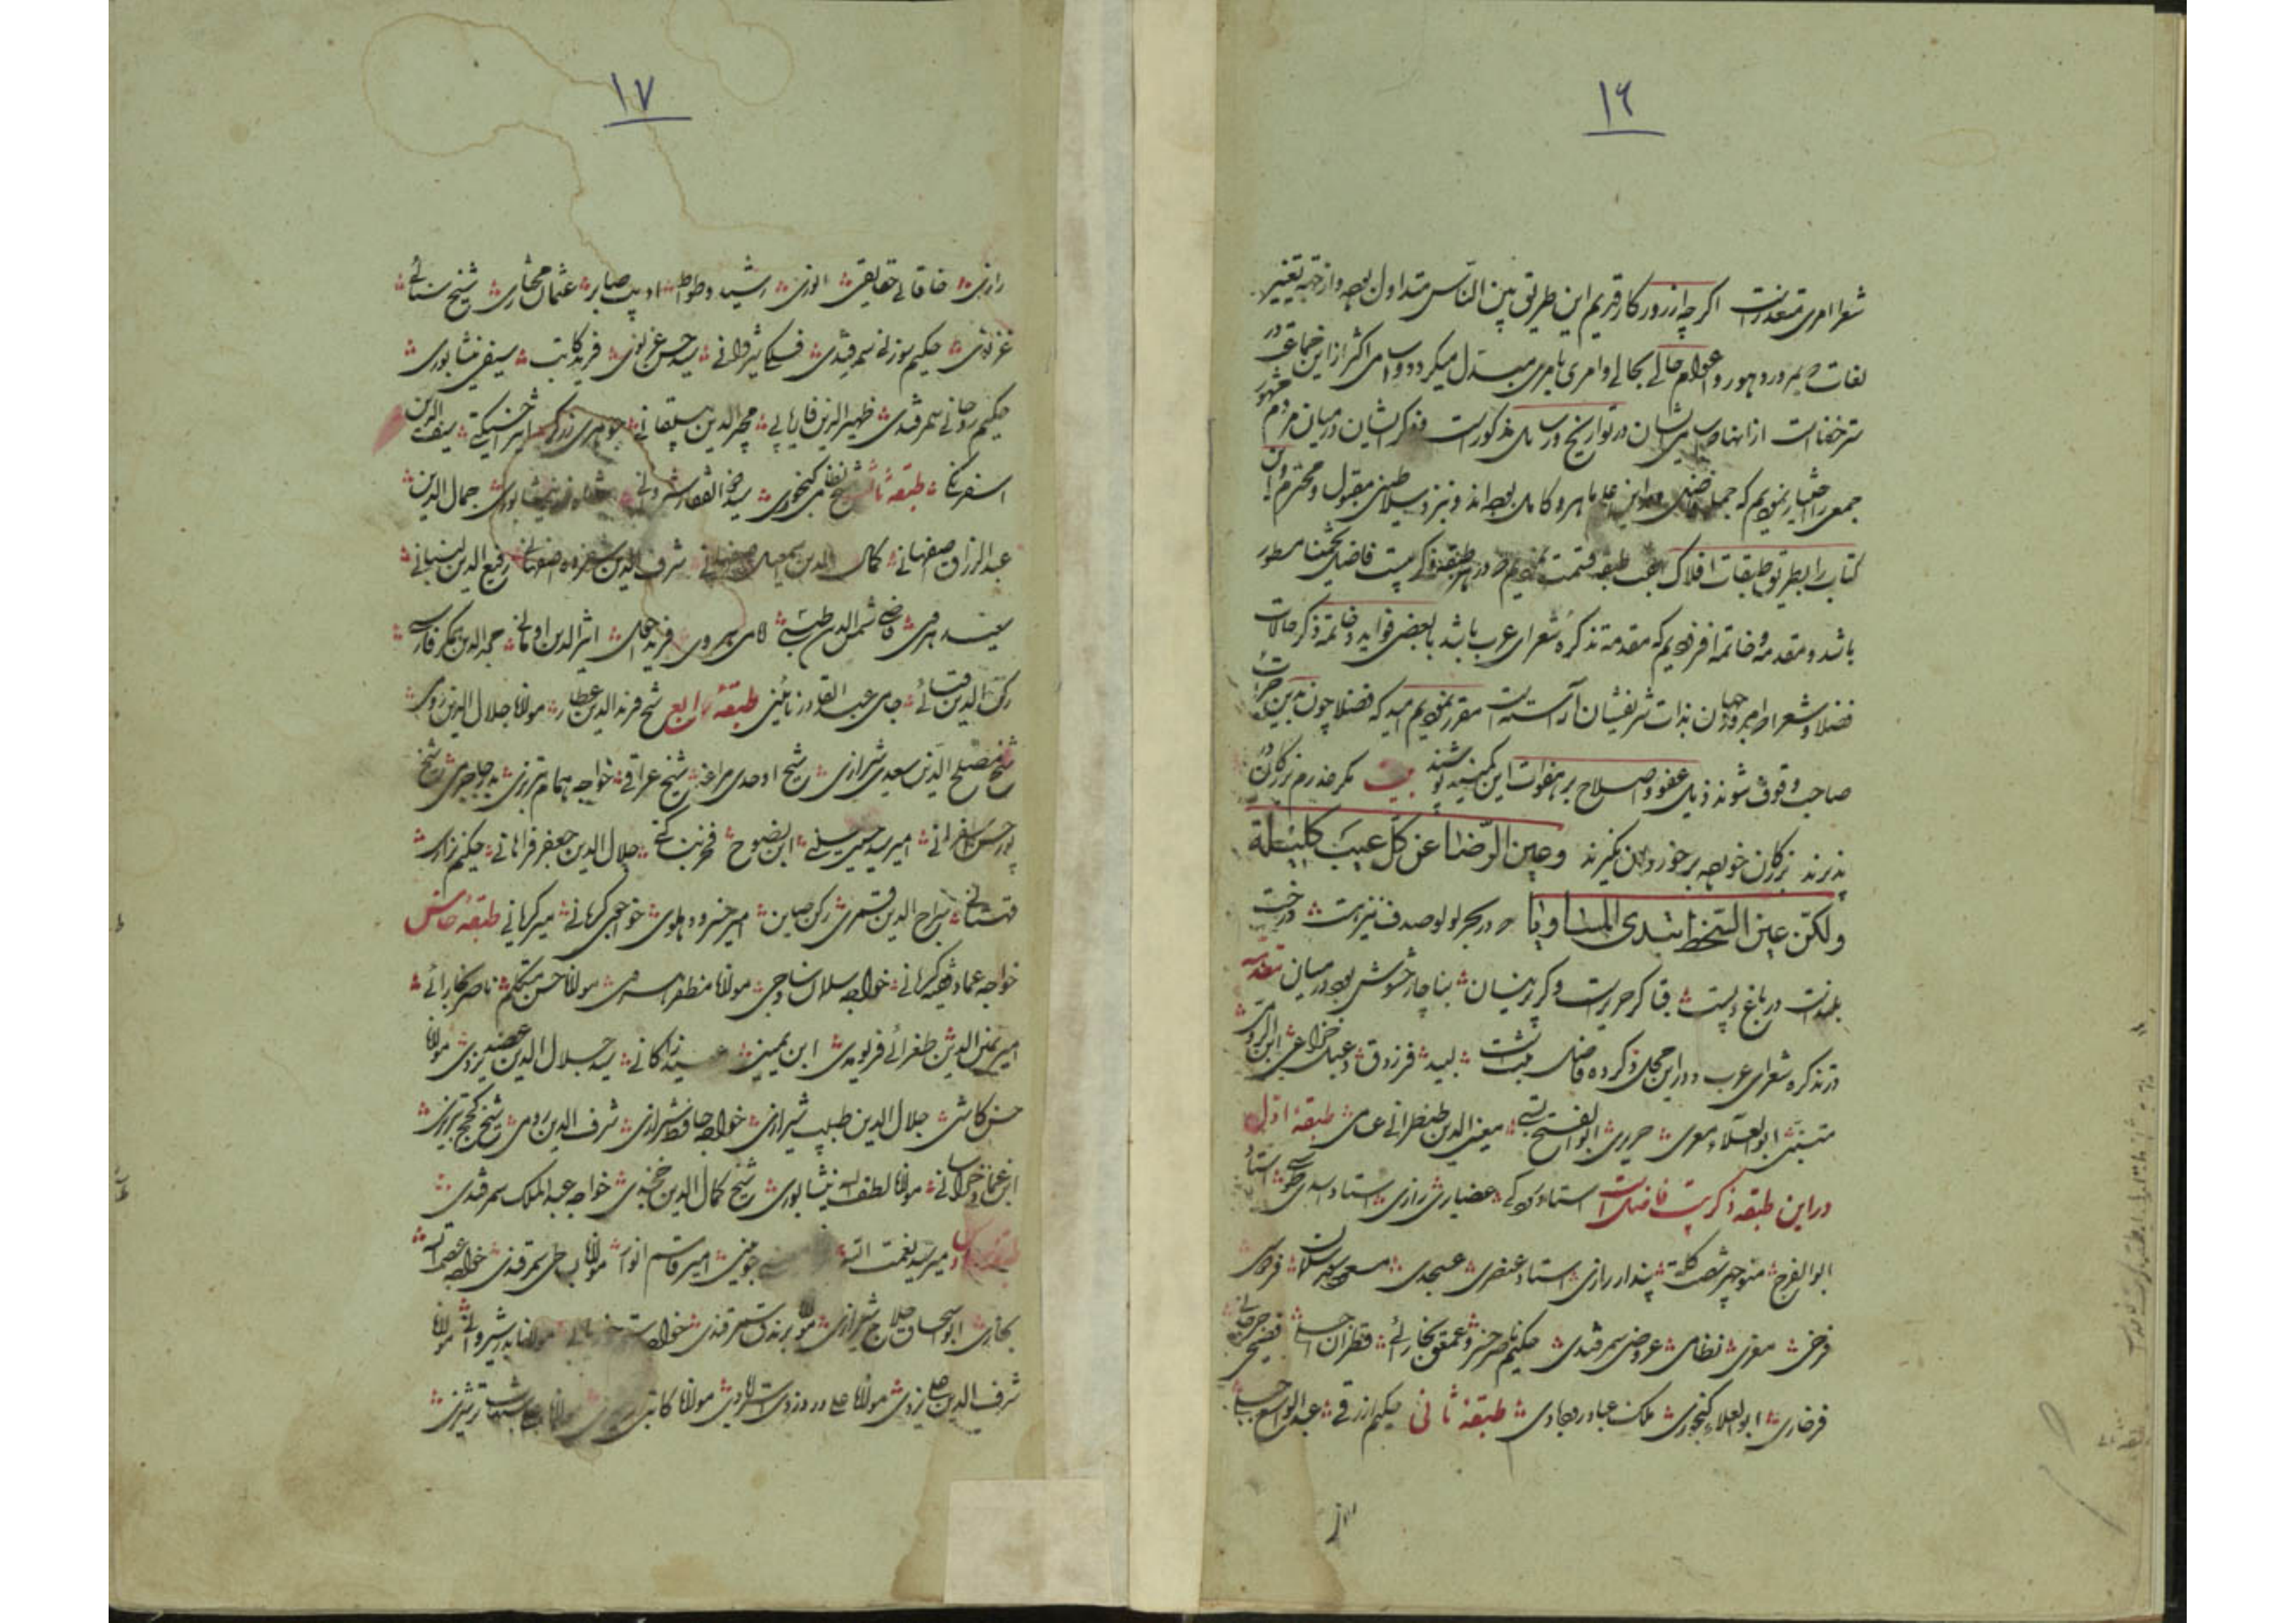 ١٦
شعرا امری متعذرست اکرچه از روزکار قدیم این طریق بین النّاس متداول بوده و از جهة تغییر
لغات بمرور دهور و عوام حالی بحالی و امری بامری مبدل میکردد و اسامی اکثر از این جماعت در
ستر خفاست از انها که اسامی ایشان در تواریخ و رسایل مذکورست و ذکر ایشان در میان مردم مشهور
جمعی را اختیار نمودیم که جمله فضلی و در این علم ماهر و کامل بوده اند و نیز نزد سلاطین مقبول و محترم این
کتاب را بطریق طبقات افلاک هفت طبقه قسمت نمودیم و در هر طبقه ذکر بیست فاضل تخمینا مسطور
باشد و مقدمه و خاتمه افزودیم که مقدمه تذکرهٔ شعرای عرب باشد با بعضی فواید و خاتمه ذکر حالات
فضلا و شعرا که امروز جهان بذات شریفشان آراسته است مقرر نمودیم امید که فضلا چون بدین جرات
صاحب وقوف شوند ذیل عفو و اصلاح بر هفوات این کمینه پوشند بیت مکر عذرم بزرکان در
پذیرند بزرکان خرده بر خوردان نکیرند وعین الرّضا عن کلّ عیب کلیلة
ولکنّ عین السّخط تبدی المساویا در بحر لولو صدف نیز هست درخت
بلندست در باغ و پست قبا کر حریرست و کر پرنیان بناچار حشوش بود در میان مقدّمه
در تذکره شعرای عرب و در این مجلد ذکر ده فاضل ثبت است لبید فرزدق دعبل خزاعی ابن الرومی
متنبّی ابو العلاء معری حریری ابو الفتح بستی معین الدین طنطرانی طبقهٔ اوّل
در این طبقه ذکر بیست فاضل است استاد رودکی غضایری رازی استاد اسدی طوسی استاد
ابو الفرج منوچهر شصت کله پندار رازی استاد عنصری عسجدی مسعود سعد سلمان فردوسی
فرخی معزی نظامی عروضی سمرقندی حکیم ناصر خسرو عمعق بخارائی قطران فصیحی جرجانی
فرخاری ابو العلاء کنجوی ملک عماد طبقهٔ ثانی حکیم ازرقی عبد الواسع جبلی
١٧
رازی خاقانی حقایقی انوری رشید وطواط ادیب صابر عثمان مختاری شیخ سنائی
غزنوی حکیم سوزنی سمرقندی فلکی شیروانی سید حسن غزنوی فرید کاتب سیفی نیشابوری
حکیم روحانی سمرقندی ظهیر الدین فاریابی مجیر الدین بیلقانی جوهری زرکر اثیر اخسیکتی سیف الدین
اسفرنکی طبقهٔ ثالث شیخ نظامی کنجوی سید ذو الفقار شروانی شاهفور نیشابوری جمال الدین
عبد الرزاق اصفهانی کمال الدین اسمعیل اصفهانی شرف الدین شفروه اصفهانی رفیع الدین لنبانی
سعید هروی قاضی شمس الدین طبسی امامی هروی فرید احول اثیر الدین اومانی مجد الدین همکر فارسی
رکن الدین قبائی عبد القادر نائینی طبقهٔ رابع شیخ فرید الدین عطار مولانا جلال الدین رومی
شیخ مصلح الدین سعدی شیرازی شیخ اوحدی مراغی شیخ عراقی خواجه همام تبریزی بدر جاجرمی شیخ
پور حسن اسفراینی امیر سید حسینی ابن نصوح فخر بناکتی جلال الدین جعفر فراهانی حکیم نزاری
قهستانی سراج الدین قمری رکن صاین امیر خسرو دهلوی خواجوی کرمانی میر کرمانی طبقهٔ خامس
خواجه عماد فقیه کرمانی خواجه سلمان ساوجی مولانا مظفر هروی مولانا حسن متکلم ناصر بخارائی
امیر یمین الدین طغرائی فریومدی ابن یمین عبید زاکانی سید جلال الدین عضد یزدی مولانا
حسن کاشی جلال الدین طبیب شیرازی خواجه حافظ شیرازی شرف الدین رومی شیخ کجج تبریزی
ابن عماد خراسانی مولانا لطف الله نیشابوری شیخ کمال الدین خجندی خواجه عبد الملک سمرقندی
طبقه سادس امیر سید نعمت الله جوینی امیر قاسم انوار مولانا بساطی سمرقندی خواجه عصمت الله
بخاری ابو اسحاق حلاج شیرازی مولانا برندق سمرقندی خواجه رستم خوریانی مولانا بدر شیروانی مولانا
شرف الدین علی یزدی مولانا علی دردزد استرابادی مولانا کاتبی مولانا علی شهاب ترشیزی